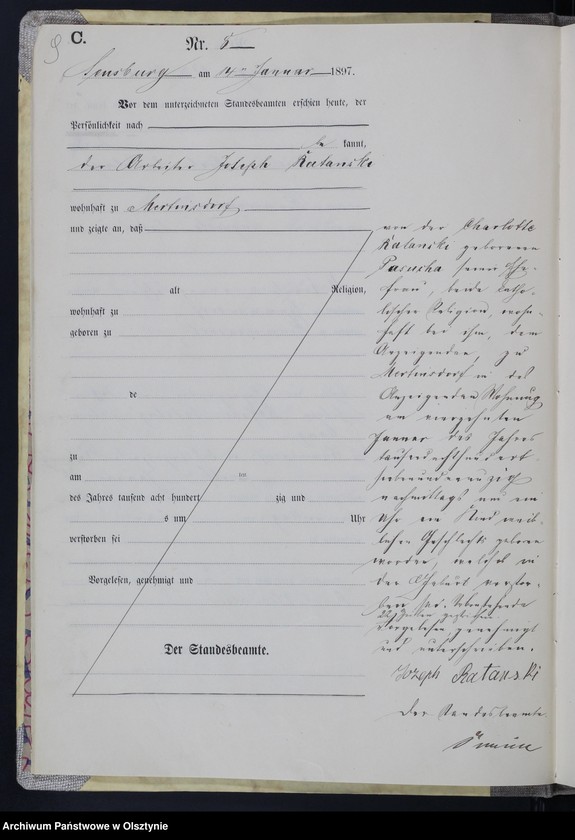 C.
Nr. 5
Sensburg am 14ten Januar 1897.
Vor dem unterzeichneten Standesbeamten erschien heute, der
Persönlichkeit nach
be kannt,
der Arbeiter Joseph Ratanski
wohnhaft zu Mertinsdorf
und zeigte an, daß
von der Charlotte
Ratanski geborenen
seiner Ehe-
frau, beide katho-
lischer Religion, wohn-
haft bei ihm, dem
Anzeigenden, zu
Mertinsdorf in des
Anzeigenden Wohnung
am vierzehnten
Januar des Jahres
tausendachthundert
siebenundneunzig
nachmittags um ein
Uhr ein Kind weib-
lichen Geschlechts geboren
worden, welches in
der Geburt verstor-
ben sei.
vorgelesen, genehmigt
und unterschrieben.
Jozeph Ratanski
Der Standesbeamte.
alt Religion,
wohnhaft zu
geboren zu
de
zu
am ten
des Jahres tausend acht hundert zig und
s um Uhr
verstorben sei
Vorgelesen, genehmigt und
Der Standesbeamte.
Archiwum Państwowe w Olsztynie